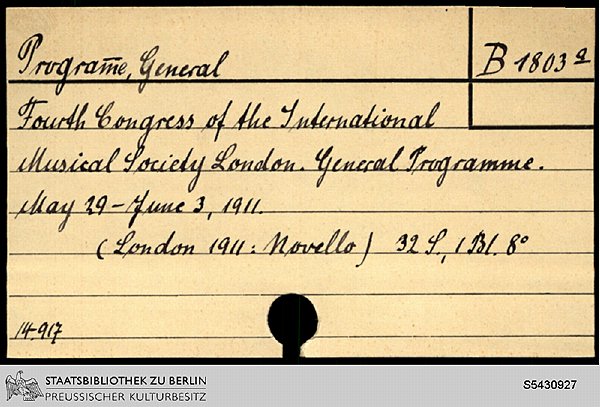 Progra͞me, General
B 1803 a
Fourth Congress of the International
Musical Society London. General Programme.
May 29 – June 3, 1911.
(London 1911: Novello) 32 S., 1 Bl. 8°
14.917
STAATSBIBLIOTHEK ZU BERLIN
PREUSSISCHER KULTURBESITZ
S5430927